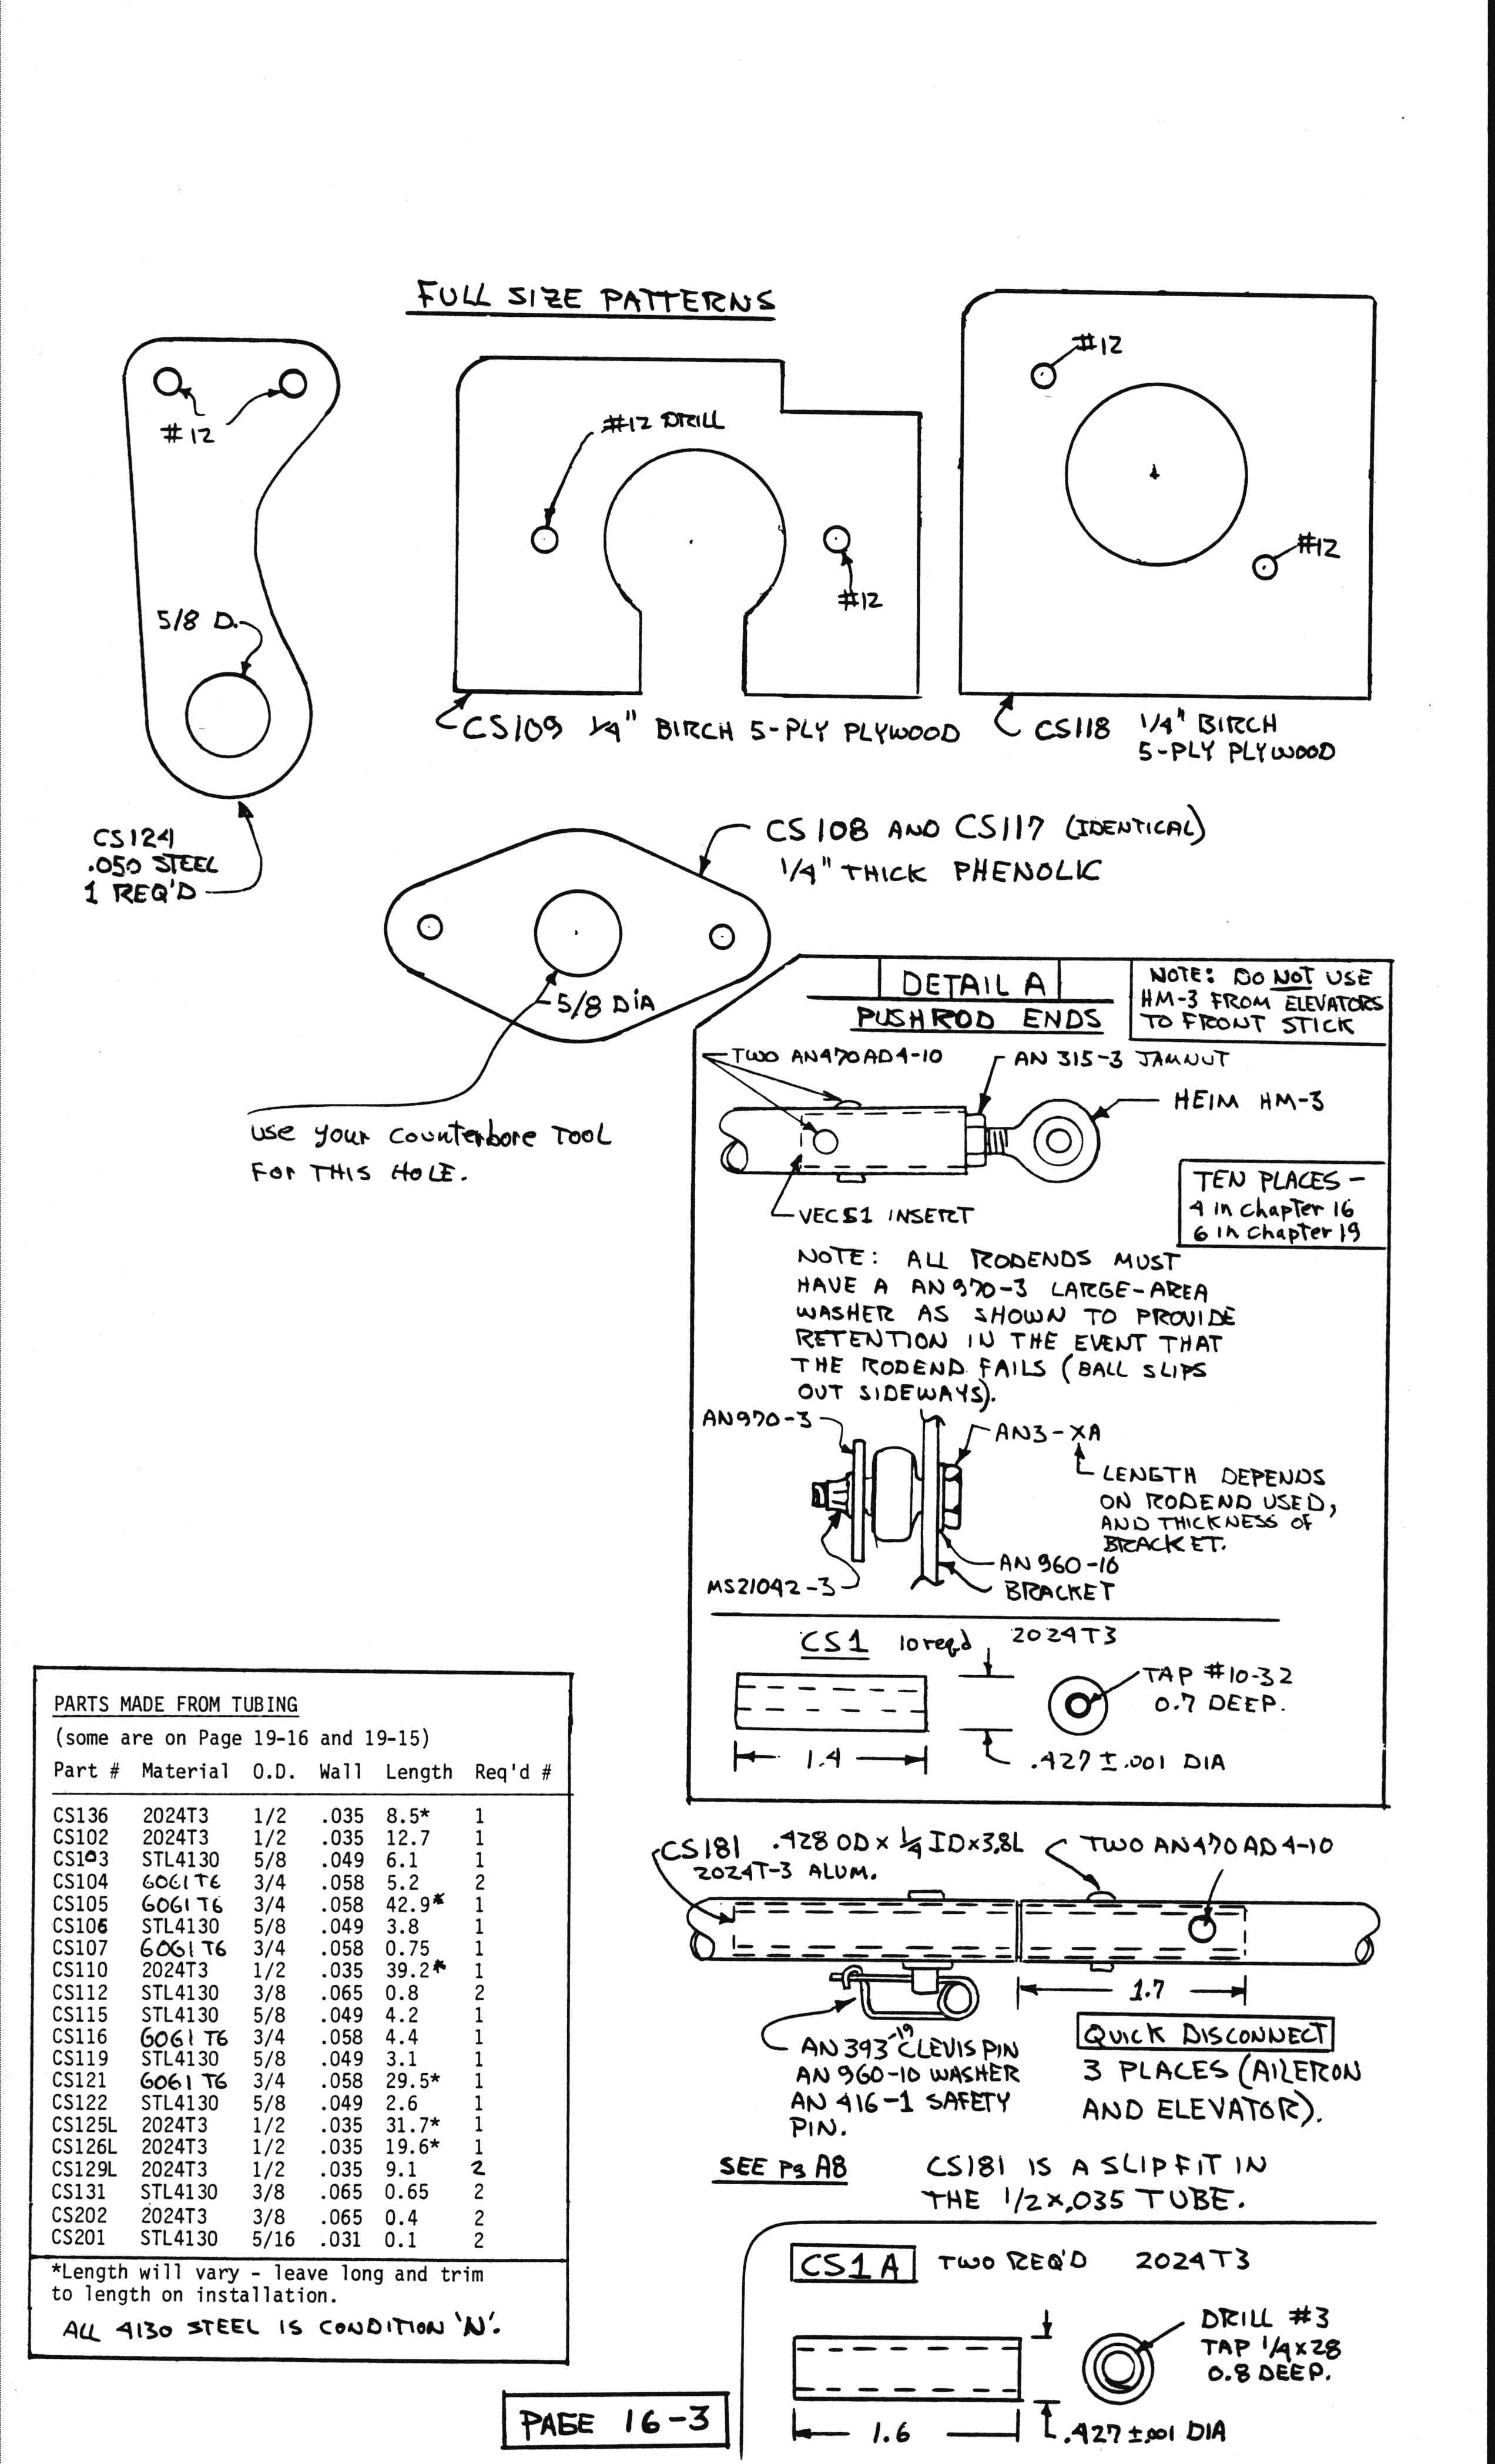 FULL SIZE PATTERNS
#12
#12 DRILL
#12
#12
#12
5/8 D.
CS109 1/4" BIRCH 5-PLY PLYWOOD
CS118 1/4" BIRCH
5-PLY PLYWOOD
CS124
.050 STEEL
1 REQ'D
CS108 AND CS117 (IDENTICAL)
1/4" THICK PHENOLIC
5/8 DIA
USE YOUR COUNTERBORE TOOL
FOR THIS HOLE.
DETAIL A
PUSHROD ENDS
NOTE: DO NOT USE
HM-3 FROM ELEVATORS
TO FRONT STICK
TWO AN470AD4-10
AN 315-3 JAMNUT
HEIM HM-3
CS1 INSERT
TEN PLACES -
4 in chapter 16
6 in chapter 19
NOTE: ALL RODENDS MUST
HAVE A AN970-3 LARGE-AREA
WASHER AS SHOWN TO PROVIDE
RETENTION IN THE EVENT THAT
THE RODEND FAILS (BALL SLIPS
OUT SIDEWAYS).
AN970-3
AN3-XA
LENGTH DEPENDS
ON RODEND USED,
AND THICKNESS OF
BRACKET.
AN960-10
BRACKET
MS21042-3
CS1 10 req'd 2024T3
TAP #10-32
0.7 DEEP.
1.4
.427 ±.001 DIA
PARTS MADE FROM TUBING
(some are on Page 19-16 and 19-15)
Part # Material O.D. Wall Length Req'd #
CS136 2024T3 1/2 .035 8.5* 1
CS102 2024T3 1/2 .035 12.7 1
CS103 STL4130 5/8 .049 6.1 1
CS104 6061T6 3/4 .058 5.2 2
CS105 6061T6 3/4 .058 42.9* 1
CS106 STL4130 5/8 .049 3.8 1
CS107 6061T6 3/4 .058 0.75 1
CS110 2024T3 1/2 .035 39.2* 1
CS112 STL4130 3/8 .065 0.8 2
CS115 STL4130 5/8 .049 4.2 1
CS116 6061T6 3/4 .058 4.4 1
CS119 STL4130 5/8 .049 3.1 1
CS121 6061T6 3/4 .058 29.5* 1
CS122 STL4130 5/8 .049 2.6 1
CS125L 2024T3 1/2 .035 31.7* 1
CS126L 2024T3 1/2 .035 19.6* 1
CS129L 2024T3 1/2 .035 9.1 2
CS131 STL4130 3/8 .065 0.65 2
CS202 2024T3 3/8 .065 0.4 2
CS201 STL4130 5/16 .031 0.1 2
*Length will vary - leave long and trim
to length on installation.
ALL 4130 STEEL IS CONDITION 'N'.
CS181 .428 OD x 1/4 ID x 3.8L
2024T-3 ALUM.
TWO AN470AD4-10
1.7
AN 393-19 CLEVIS PIN
AN 960-10 WASHER
AN 416-1 SAFETY
PIN.
QUICK DISCONNECT
3 PLACES (AILERON
AND ELEVATOR).
SEE Pg A8
CS181 IS A SLIP FIT IN
THE 1/2 x .035 TUBE.
CS1A TWO REQ'D 2024T3
DRILL #3
TAP 1/4 x 28
0.8 DEEP.
1.6
.427 ±.001 DIA
PAGE 16-3